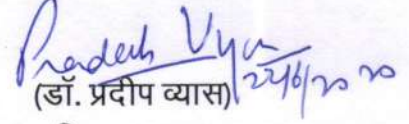 Pradeep Vyas
22/6/2020
(डॉ. प्रदीप व्यास)